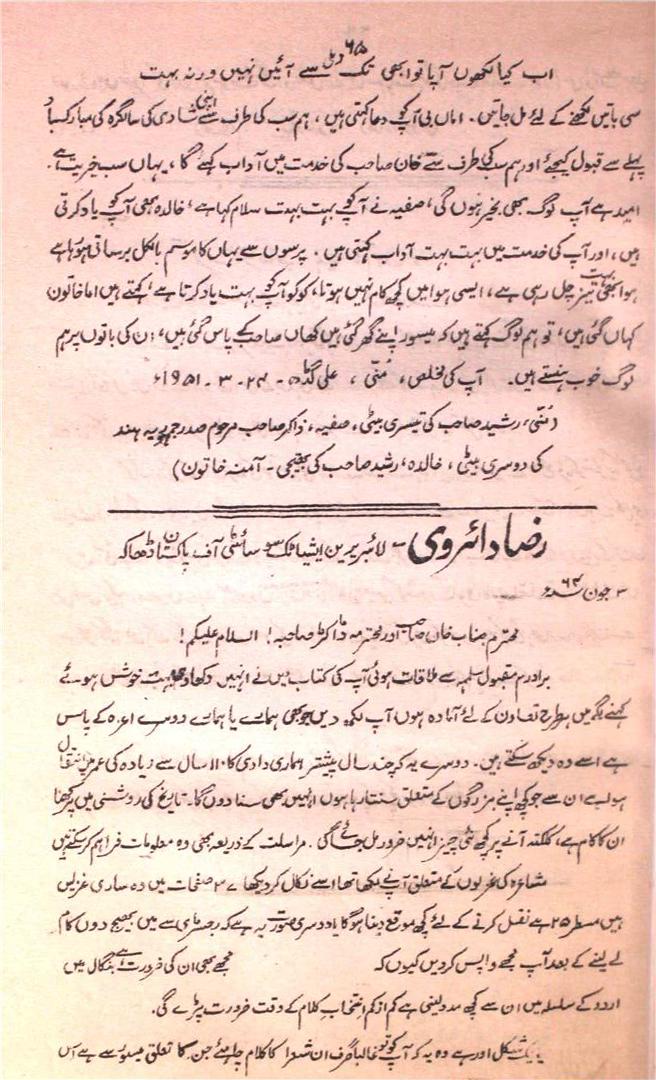 ۶۵
اب کیا لکھوں آپا تو ابھی تک دہلی سے آئیں نہیں ورنہ بہت
سی باتیں لکھنے کے لئے مل جاتیں۔ اماں بی آپ کو دعا کہتی ہیں، ہم سب کی طرف سے اپنی شادی کی سالگرہ کی مبارکباد
پہلے سے قبول کیجئے اور ہم سب کی طرف سے خان صاحب کی خدمت میں آداب کہئے گا، یہاں سب خیریت ہے،
امید ہے آپ لوگ بھی بخیر ہوں گی، صفیہ نے آپ کو بہت بہت سلام کہا ہے، خالدہ بھی آپ کو یاد کرتی
ہیں، اور آپ کی خدمت میں بہت بہت آداب کہتی ہیں۔ پرسوں سے یہاں کا موسم بالکل برساتی ہو رہا ہے
ہوا بھی بہت تیز چل رہی ہے، ایسی ہوا میں کچھ کام نہیں ہوتا، کوکو آپ کو بہت یاد کرتا ہے، کہتے ہیں اما خاتون
کہاں گئی ہیں، تو ہم لوگ کہتے ہیں کہ میسور اپنے گھر گئی ہیں کھاں صاحب کے پاس گئی ہیں، ان کی باتوں پر ہم
لوگ خوب ہنستے ہیں۔ آپ کی مخلص، مُنّی، علی گڈھ۔ ۲۴۔ ۳۔ ۱۹۵۱ء
(مُنّی، رشید صاحب کی تیسری بیٹی، صفیہ، ذاکر صاحب مرحوم صدر جمہوریہ ہند
کی دوسری بیٹی، خالدہ، رشید صاحب کی بھتیجی۔ آمنہ خاتون)
رضا دائروی۔ لائبریرین ایشیاٹک سوسائٹی آف پاکستان ڈھاکہ
۳ جون ۶۴ء
محترم جناب خان صاحب اور محترمہ ڈاکٹر صاحبہ! السلام علیکم!
برادرم مقبول سلمہ سے ملاقات ہوئی آپ کی کتاب میں نے انہیں دکھا دی بہت خوش ہوئے
کہنے لگے میں ہر طرح تعاون کے لئے آمادہ ہوں آپ لکھ دیں جو بھی ہمارے یا ہمارے دوسرے اعزہ کے پاس
ہے اسے وہ دیکھ سکتے ہیں۔ دوسرے یہ کہ چند سال پیشتر ہماری دادی کا ۱۱۰ سال سے زیادہ کی عمر میں انتقال
ہوا ہے ان سے جو کچھ اپنے بزرگوں کے متعلق سنتا رہا ہوں انہیں بھی سنا دوں گا۔ تاریخ کی روشنی میں پرکھنا
ان کا کام ہے، کلکتہ آنے پر کچھ نئی چیز انہیں ضرور مل جائے گی۔ مراسلت کے ذریعہ بھی وہ معلومات فراہم کر سکتے ہیں
مشاعرہ کی غزلوں کے متعلق آپ نے لکھا تھا اسے نکال کر دیکھا ۳۷ صفحات میں وہ ساری غزلیں
ہیں مسطر ۲۵ ہے نقل کرنے کے لئے کچھ موقع دینا ہوگا یا دوسری صورت یہ ہے کہ رجسٹری سے میں بھیج دوں کام
لے لینے کے بعد آپ مجھے واپس کر دیں کیوں کہ مجھے بھی ان کی ضرورت ہے بنگال میں
اردو کے سلسلہ میں ان سے کچھ مدد لینی ہے کم از کم انتخاب کلام کے وقت ضرورت پڑے گی۔
ایک شکل اور ہے وہ یہ کہ آپ کو تو غالباً صرف ان شعرا کا کلام چاہئے جن کا تعلق میسور سے ہے اس